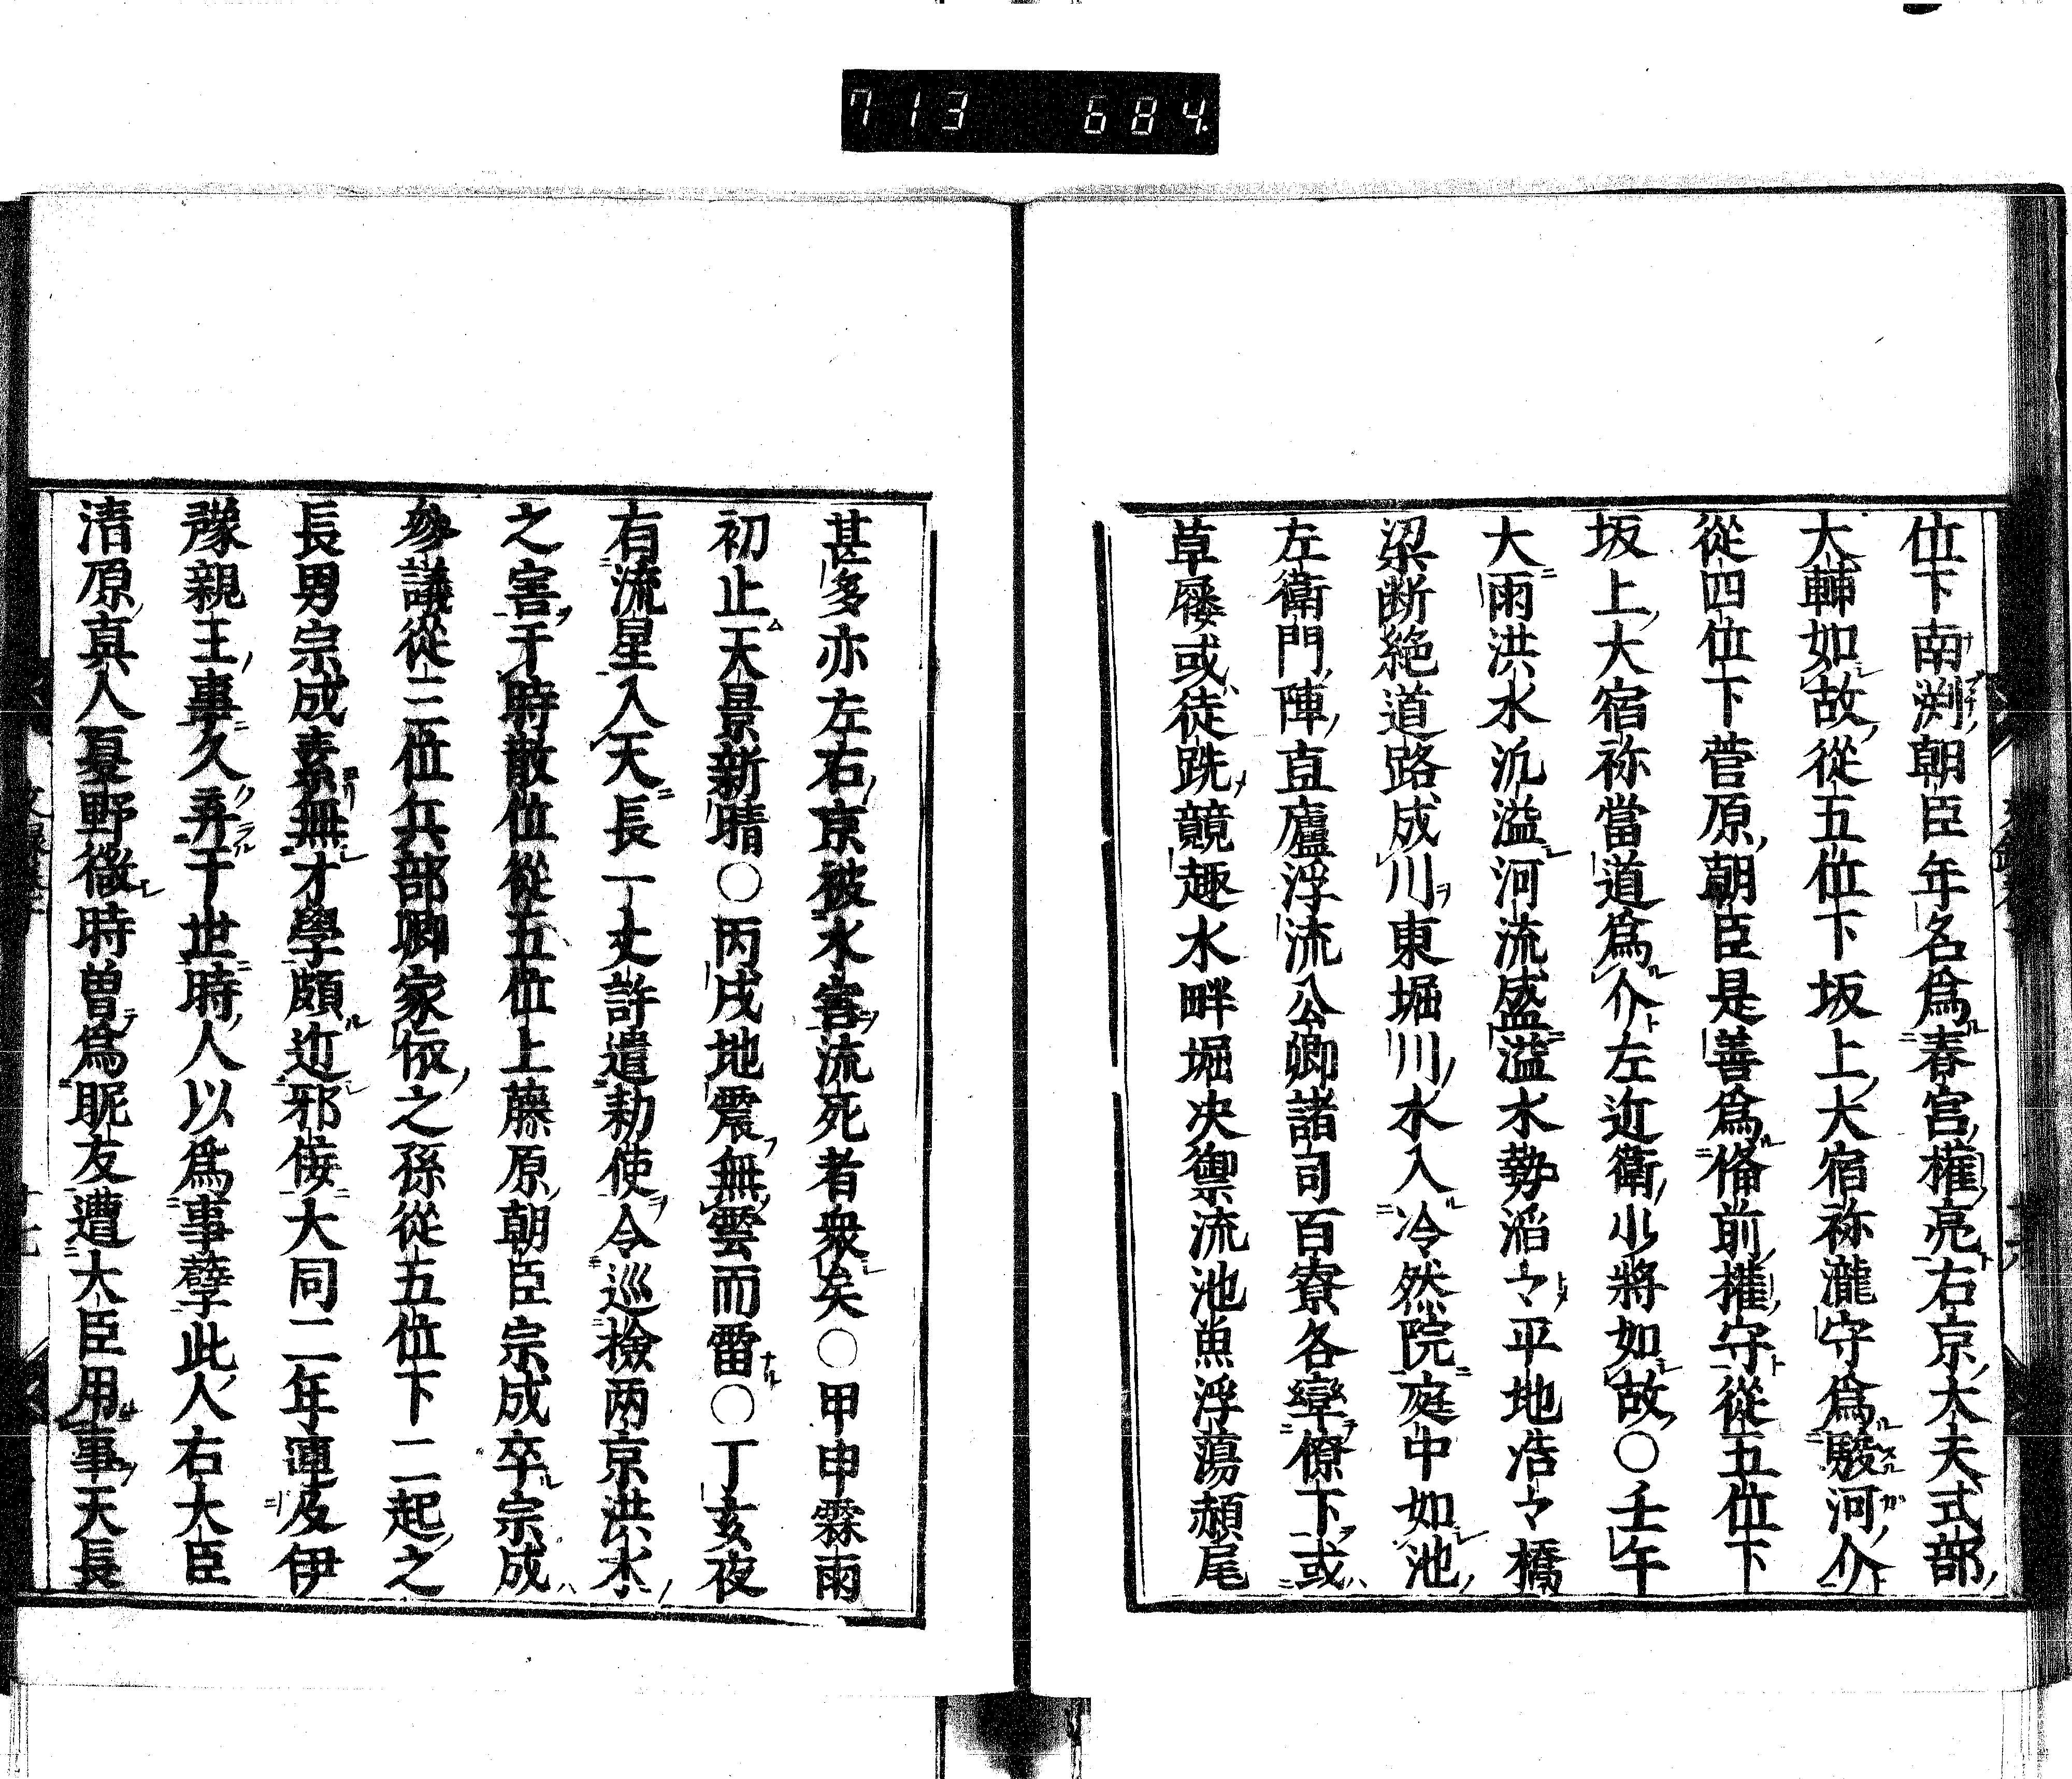 713 684
位下南渕朝臣年名爲春宮權亮右京大夫式部
大輔如故從五位下坂上大宿祢瀧守爲駿河介
從四位下菅原朝臣是善爲俻前權守從五位下
坂上大宿祢當道爲介左近衛少將如故○壬午
大雨洪水汎溢河流盛溢水勢滔々平地浩々橋
梁断絶道路成川東堀川水入冷然院庭中如池
左衛門陣直廬浮流公卿諸司百寮各率僚下或
草屨或徒跣競趣水畔堀决禦流池魚浮蕩頳尾
甚多亦左右京被水害流死者衆矣○甲申霖雨
初止天景新晴○丙戌地震無雲而雷○丁亥夜
有流星入天長一丈許遣勑使令巡撿两京洪水
之害于時散位從五位上藤原朝臣宗成卒宗成
參議從三位兵部卿家依之孫從五位下二起之
長男宗成素無才學頗近邪佞大同二年連及伊
豫親王事久弃于世時人以爲事孽此人右大臣
清原真人夏野微時曽爲眤友遭大臣用事天長